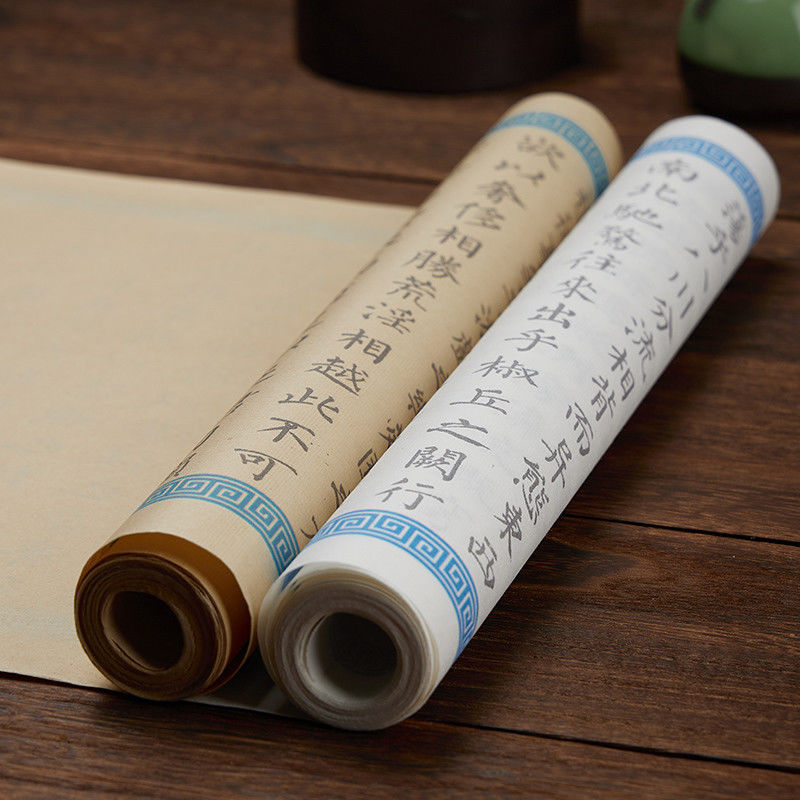 蕩乎八川分流相背而異態東西
南北馳騖往來出乎椒丘之闕行
欲以奢侈相勝荒淫相越此不可